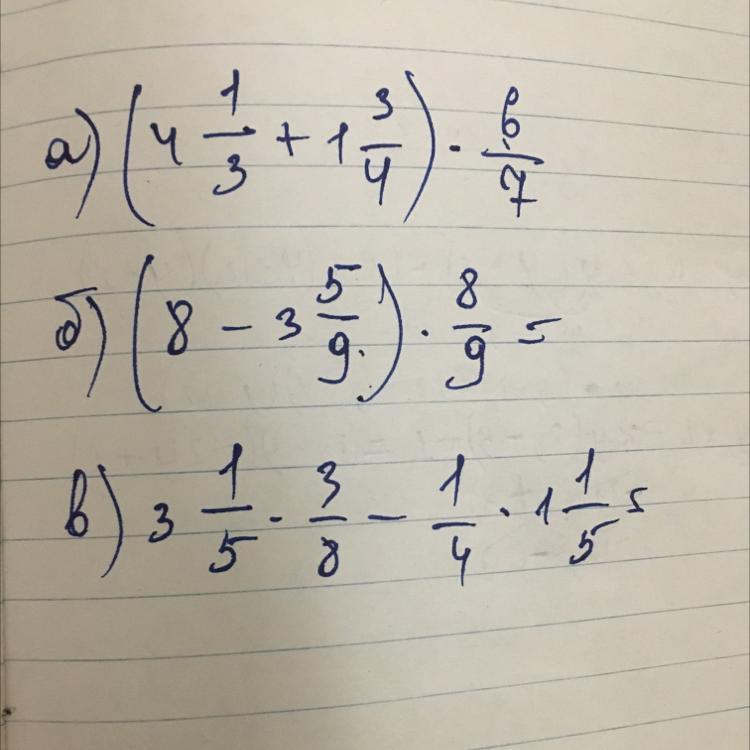 а) (4 1/3 + 1 3/4) · 6/7
б) (8 − 3 5/9) · 8/9 =
в) 3 1/5 · 3/8 − 1/4 · 1 1/5 =